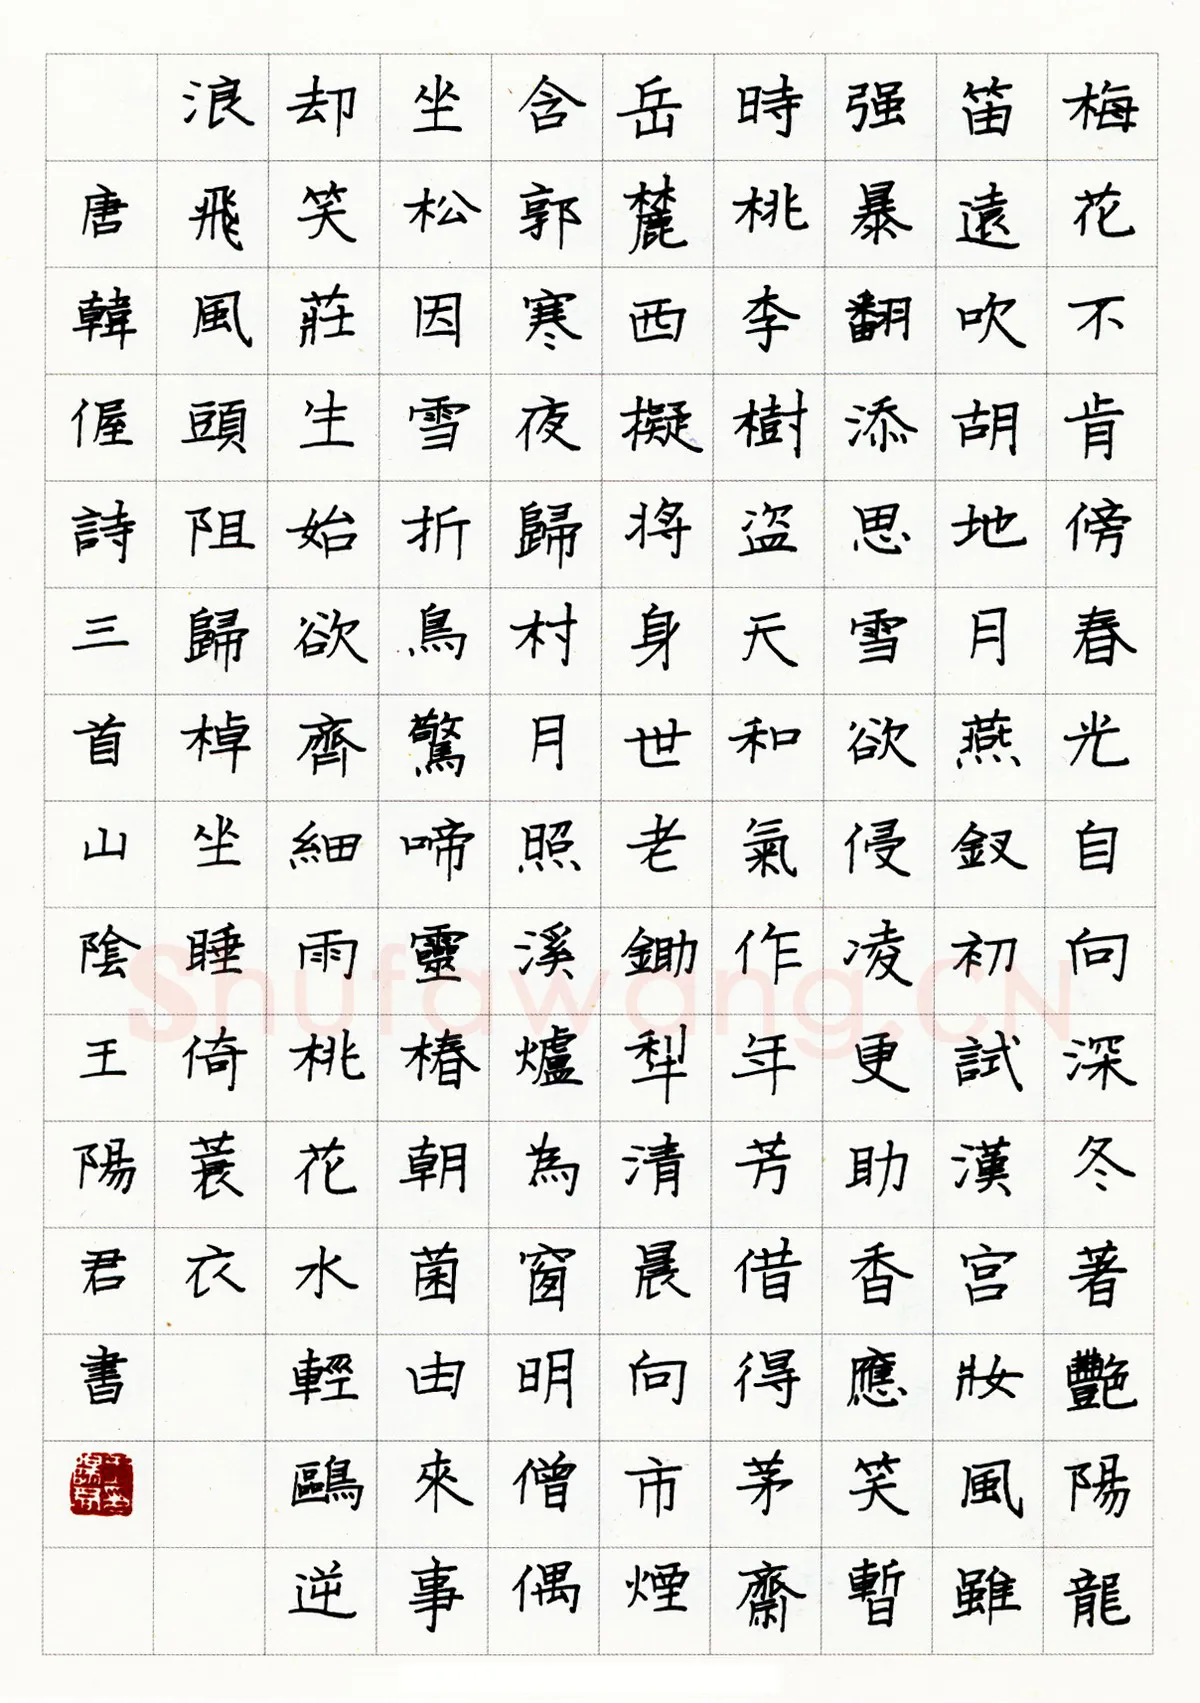 梅花不肯傍春光自向深冬著艷陽龍
笛遠吹胡地月燕釵初試漢宮妝風雖
强暴翻添思雪欲侵凌更助香應笑暫
時桃李樹盜天和氣作年芳借得茅齋
岳麓西擬將身世老鋤犁清晨向市煙
含郭寒夜歸村月照溪爐為窗明僧偶
坐松因雪折鳥驚啼靈椿朝菌由來事
却笑莊生始欲齊細雨桃花水輕鷗逆
浪飛風頭阻歸棹坐睡倚蓑衣
唐韓偓詩三首山陰王陽君書
Shufawang.CN